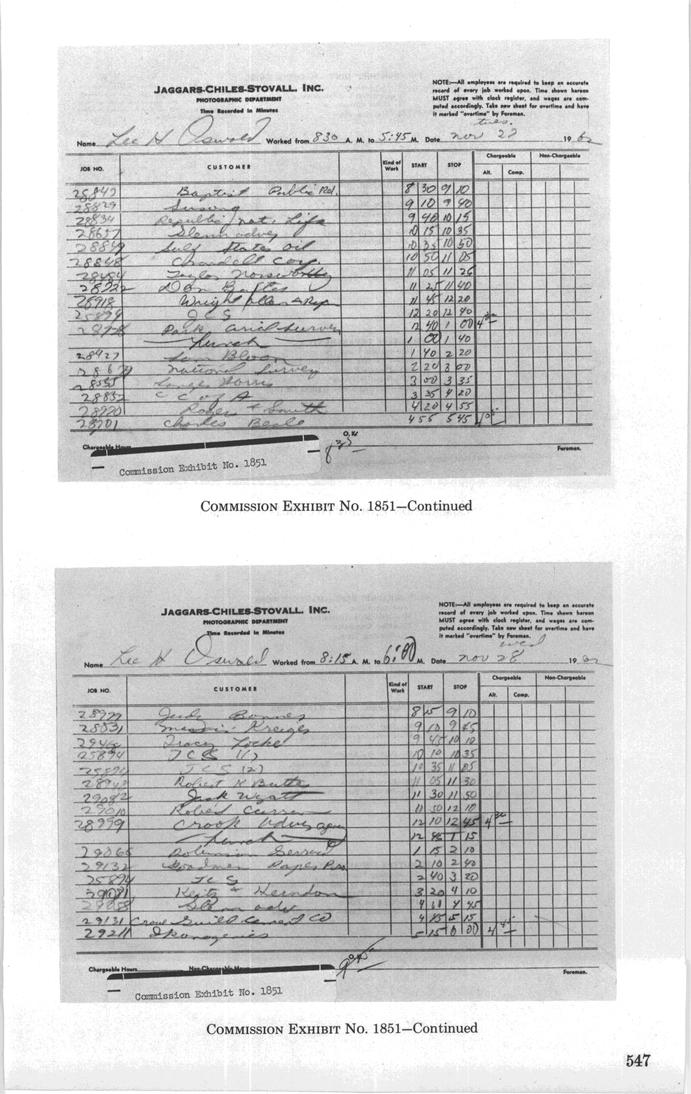 JAGGARS-CHILES-STOVALL, INC.
PHOTOGRAPHIC DEPARTMENT
Time Recorded in Minutes
NOTE:—All employees are required to keep an accurate
record of every job worked upon. Time shown hereon
MUST agree with clock register, and wages are com-
puted accordingly. Take new sheet for overtime and have
it marked "overtime" by Foreman.
tues.
Name Lee H Oswald Worked from 8 30 A. M. to 5:45 M. Date Nov 27 1962
JOB NO. CUSTOMER Kind of Work START STOP Chargeable Non-Chargeable
Alt. Comp.
28847 Baptist Public Rel. 8 30 9 10
28829 9 10 9 40
28834 Republic Nat. Life 9 40 10 15
28657 Glenn advg 10 15 10 35
28849 Gulf States Oil 10 35 10 50
28848 Crandall Coy. 10 50 11 05
28484 Taylor Norsworthy 11 05 11 25
28922 Don Baxter 11 25 11 40
28918 Wright plan & Rep 11 45 12 20
25894 JCS 12 20 12 40
Park Arial Survey 12 40 1 00 4 30
Lunch 1 00 1 40
28427 Sam Bloom 1 40 2 20
National Survey 2 20 3 00
28555 Lange Harris 3 00 3 35
28832 C C of A 3 35 4 20
28920 & Smith 4 20 4 55
28901 Charles Beale 4 55 5 45 4 05
Chargeable Hours O.K. Foreman.
Commission Exhibit No. 1851
COMMISSION EXHIBIT NO. 1851—Continued
JAGGARS-CHILES-STOVALL, INC.
PHOTOGRAPHIC DEPARTMENT
Time Recorded in Minutes
NOTE:—All employees are required to keep an accurate
record of every job worked upon. Time shown hereon
MUST agree with clock register, and wages are com-
puted accordingly. Take new sheet for overtime and have
it marked "overtime" by Foreman.
wed
Name Lee H Oswald Worked from 8:15 A. M. to 6:00 M. Date Nov 28 1962
JOB NO. CUSTOMER Kind of Work START STOP Chargeable Non-Chargeable
Alt. Comp.
28977 Judy Bonner 8 15 9 10
28831 9 10 9 45
Tracy Locke 9 45 10 10
25894 JCS (1) 10 10 10 35
25894 JCS (2) 10 35 11 05
Robert K Butts 11 05 11 30
29082 Jack Wyatt 11 30 11 50
29010 Robert 11 50 12 10
28999 Crook Adver agency 12 10 12 45 4 30
Lunch 12 45 1 15
29065 Robinson 1 15 2 10
29132 Goodner Paper 2 10 2 40
25894 JCS 2 40 3 20
29081 Keitz & Herndon 3 20 4 10
Glenn adv 4 10 4 45
29131 Crowe Guild Cement Co 4 45 5 15
29211 5 15 6 00 4 45
Chargeable Hours Non-Chargeable Hours O.K. Foreman.
Commission Exhibit No. 1851
COMMISSION EXHIBIT NO. 1851—Continued
547